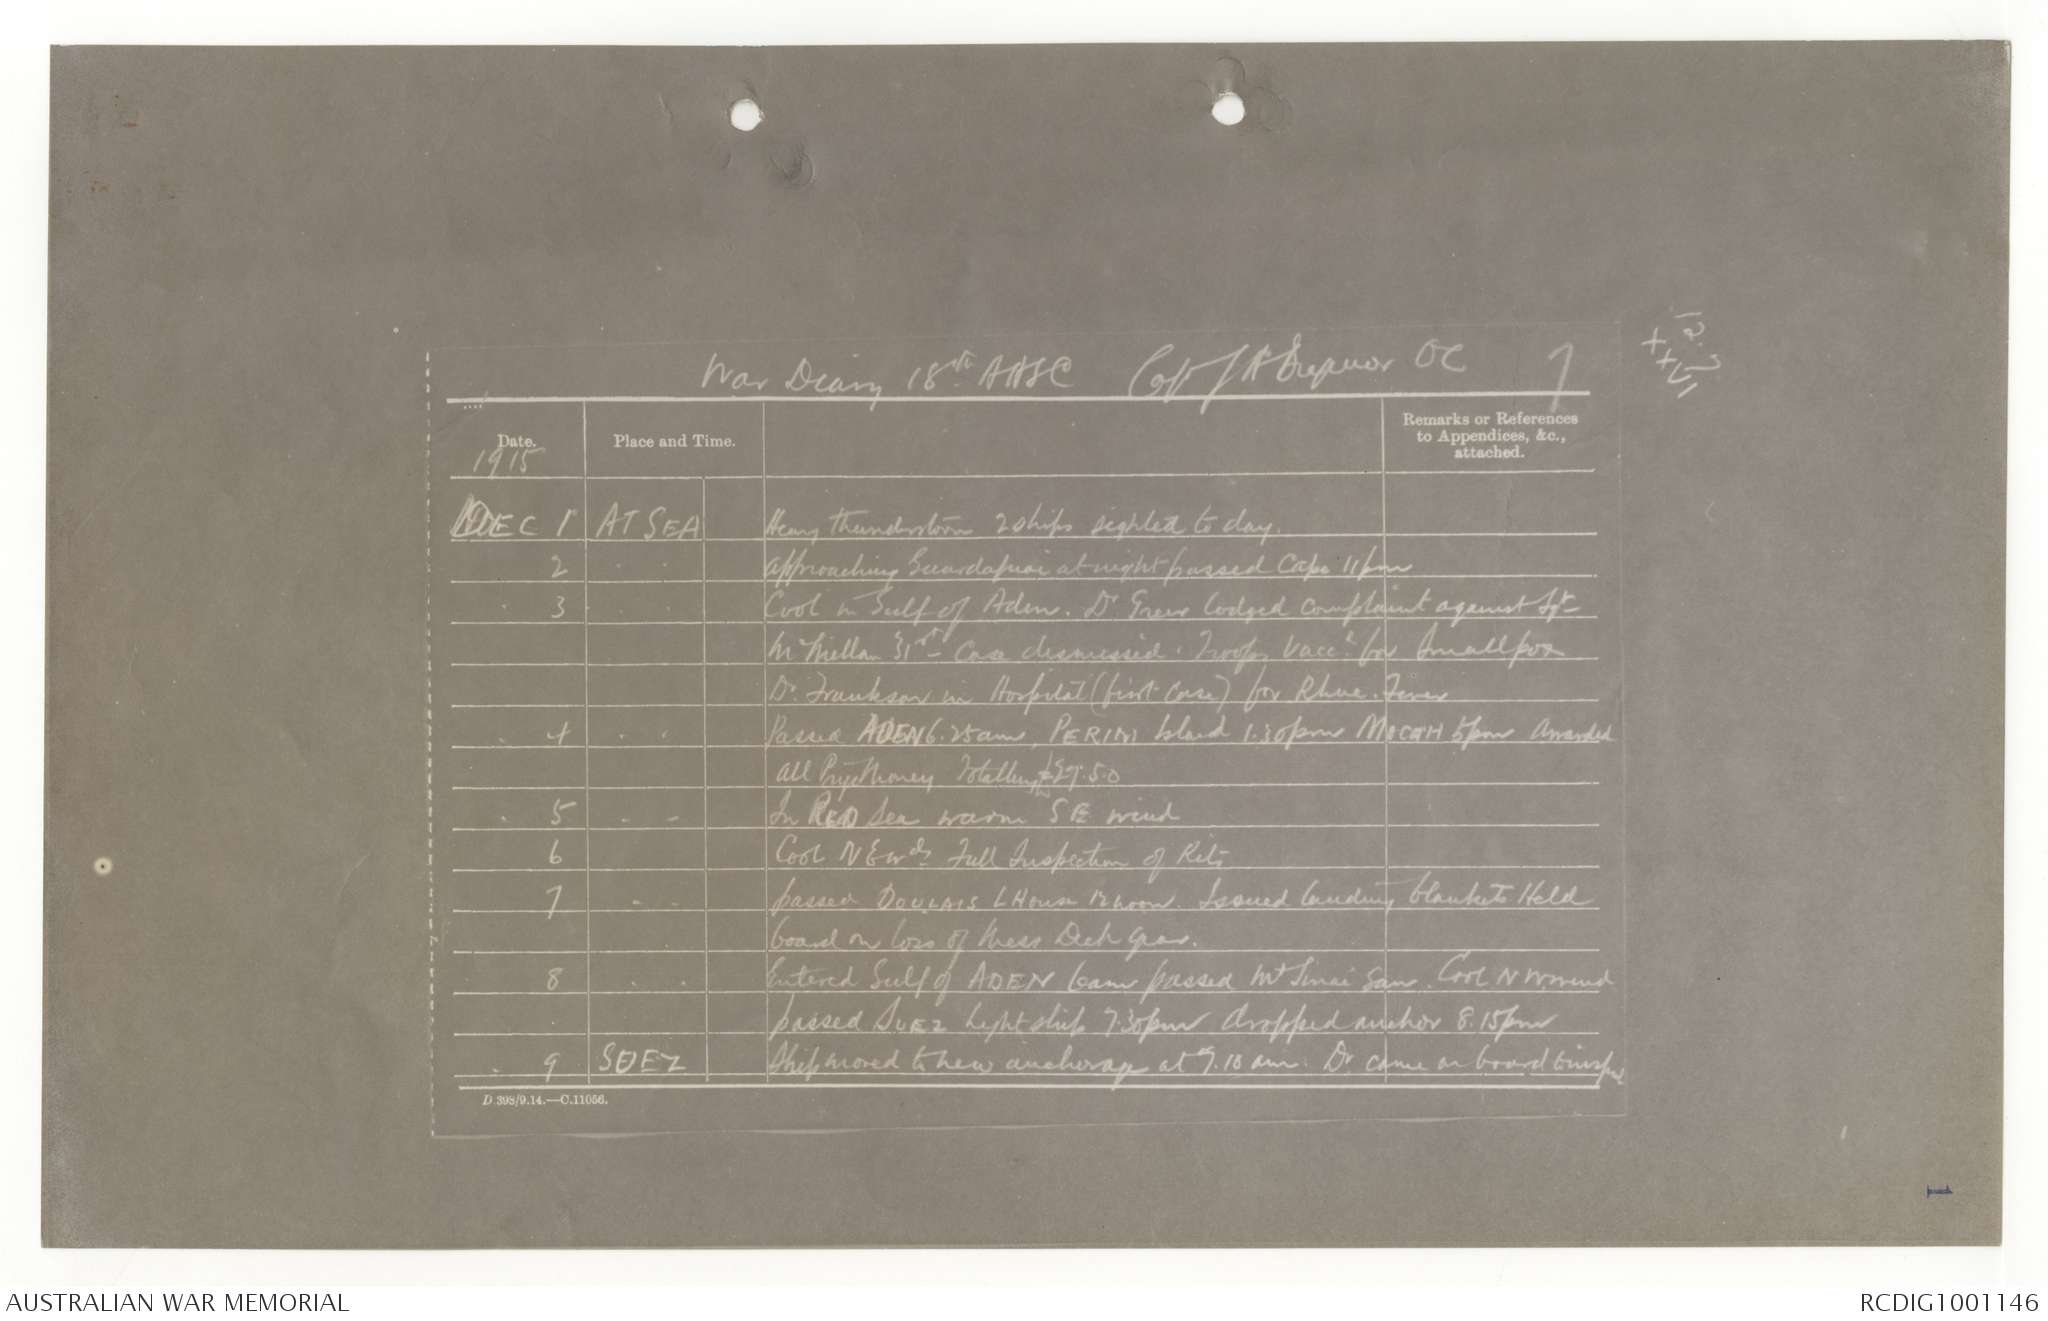 War Diary 18th AASC Capt J A OC 7
12.7
XXVI
Date. Place and Time. Remarks or References to Appendices, &c., attached.
1915
DEC 1 AT SEA Heavy thunderstorm 2 ships sighted to day.
2 " " approaching Guardafuai at night passed Cape 11pm
" 3 " " Cool in Gulf of Aden. Dr Greer lodged complaint against Sgt
McMillan 31st Case dismissed. Troops Vacc'd for Smallpox
Dr. Frankson in Hospital (first case) for Rheu. Fever
" 4 " " Passed ADEN 6.25am, PERIM Island 1.30pm MOCAH 5pm Awarded
all Prize Money Totalling £29.5.0
" 5 " " In RED Sea warm SE wind
6 Cool N E wds Full Inspection of Kits
7 " " passed DOULAIS L House 12 noon. Issued landing blankets Held
board on loss of Mess Deck gear.
8 " " Entered Gulf of ADEN 6am passed Mt Sinai 9am. Cool N W wind
passed SUEZ Lightship 7.30pm dropped anchor 8.15pm
" 9 SUEZ Ship moved to new anchorage at 7.10 am. Dr came on board to inspect
D 398/9.14.—C.11056.
1
AUSTRALIAN WAR MEMORIAL RCDIG1001146